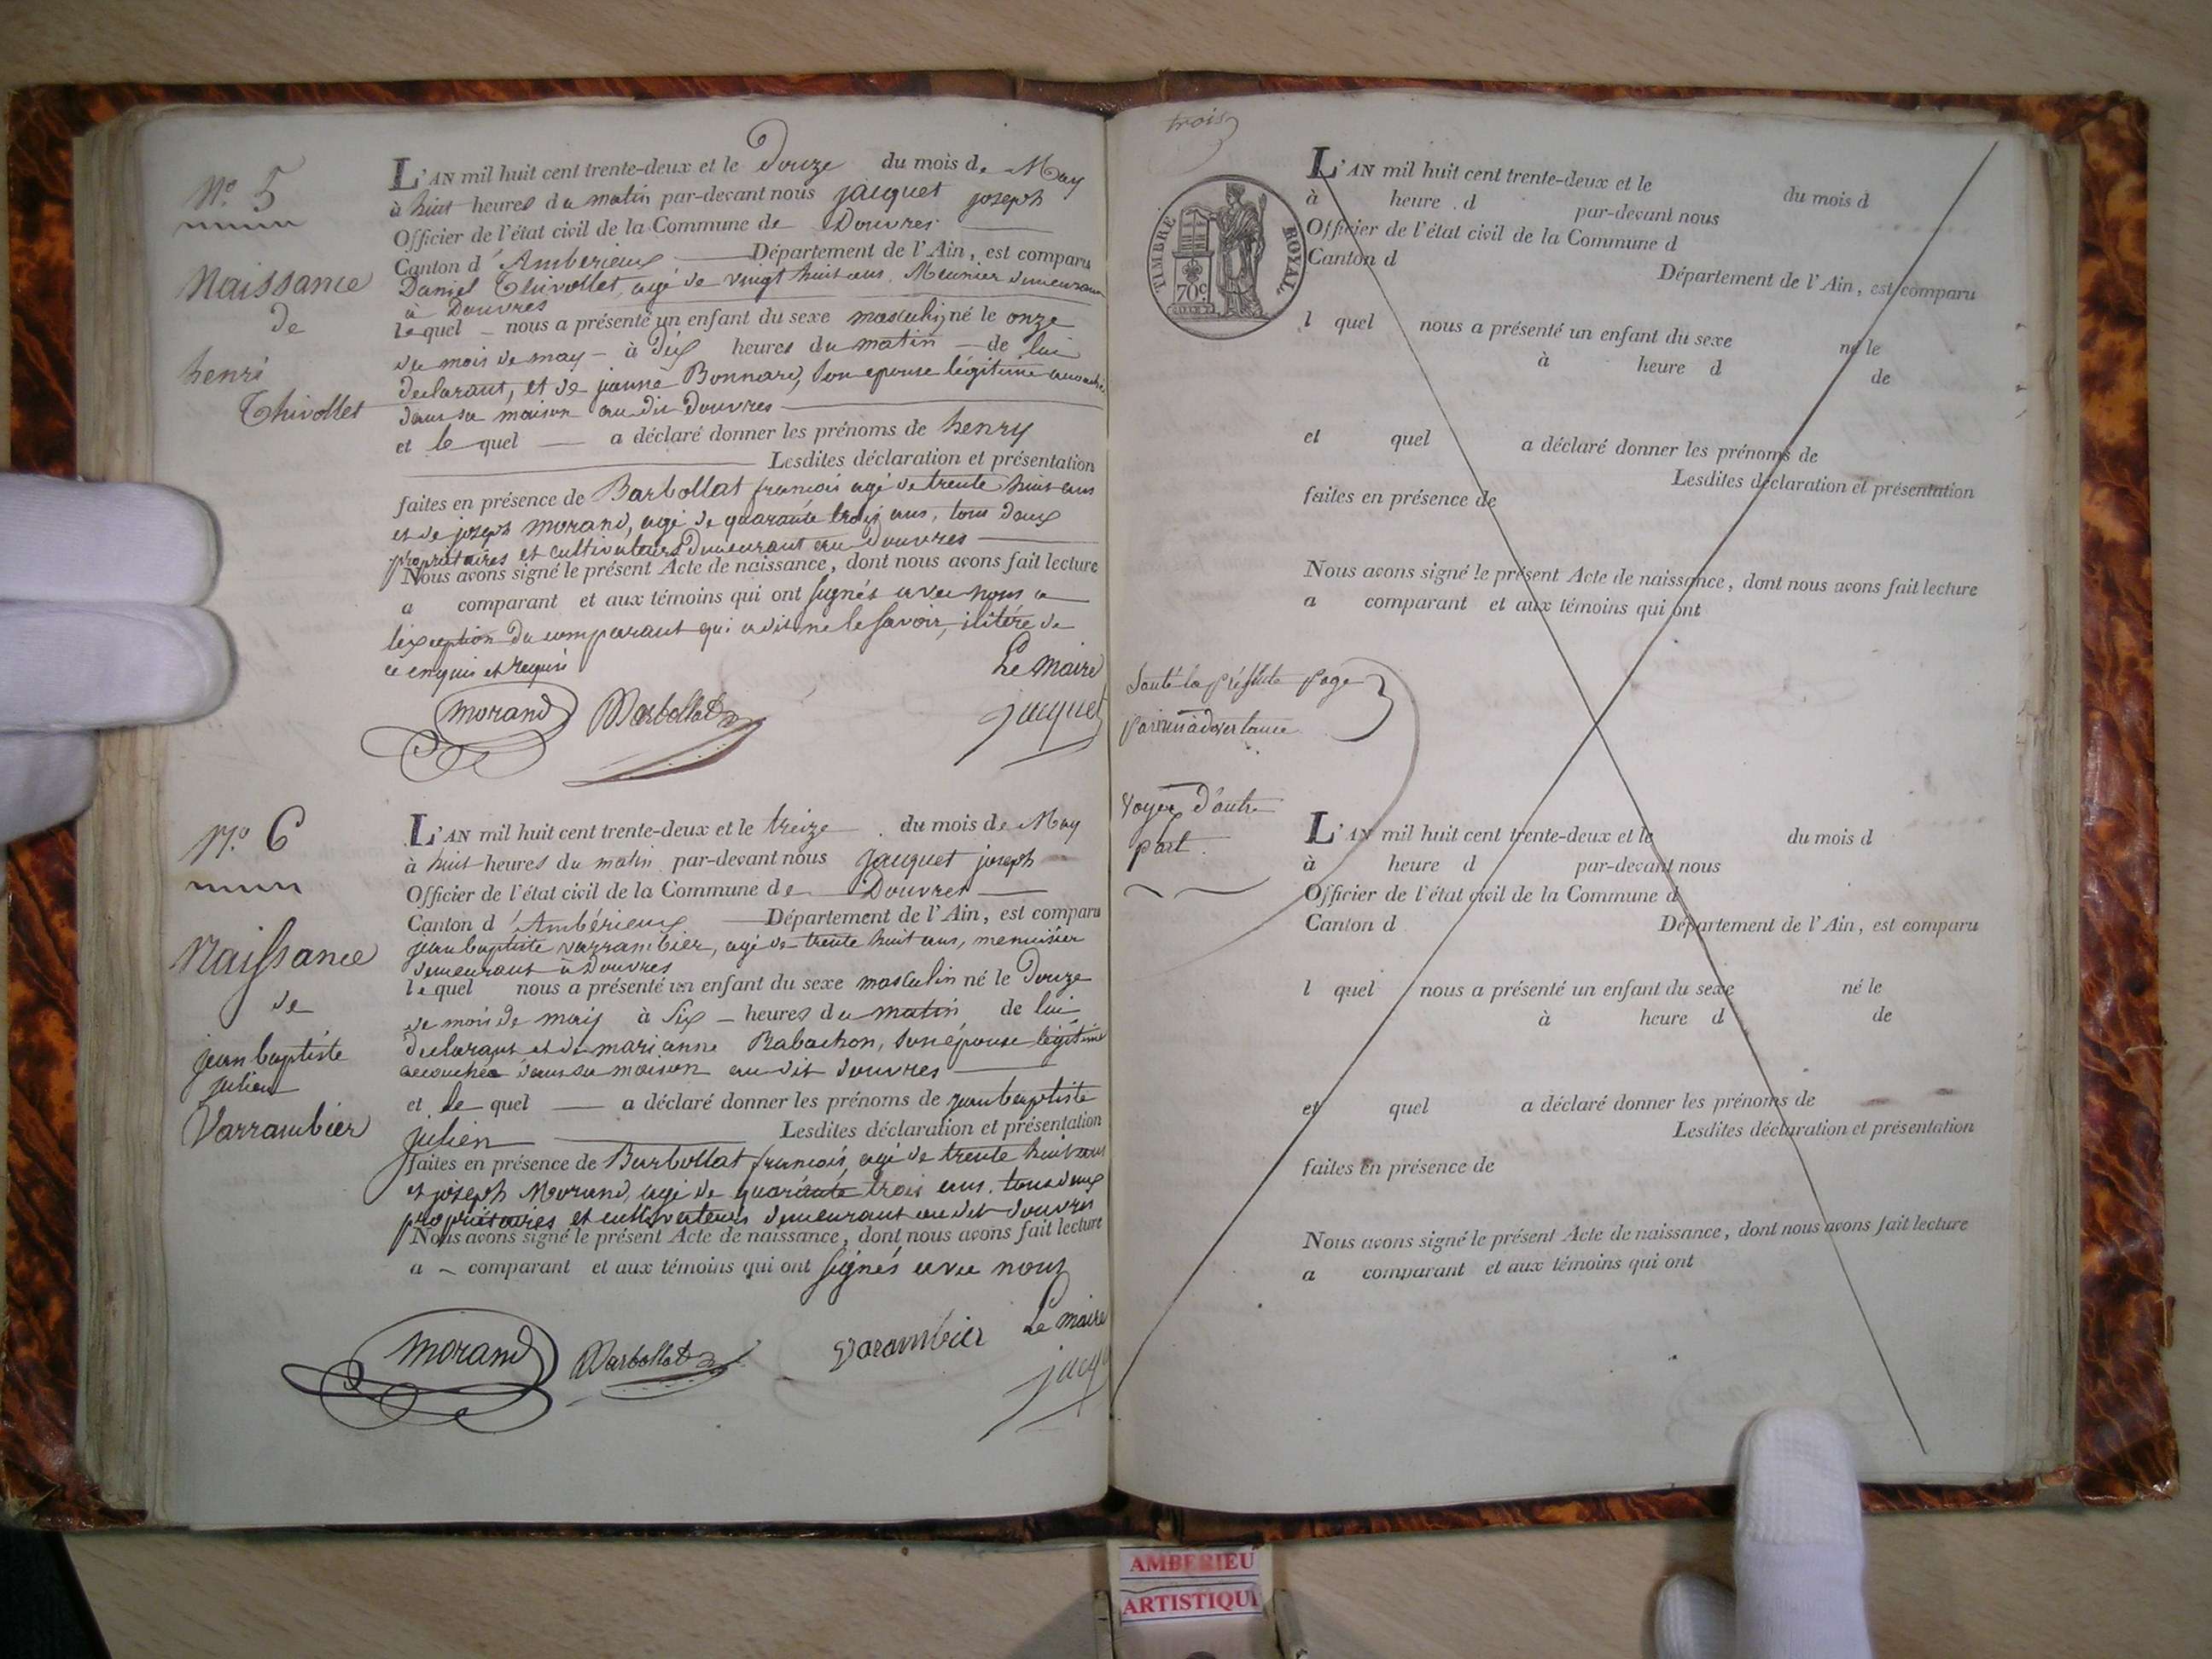 N.º 5
Naissance
de
henri
Thivollet
L'AN mil huit cent trente-deux et le Douze du mois de May
à huit heures du matin par-devant nous jacquet joseph
Officier de l'état civil de la Commune de Douvres
Canton d'Ambérieux Département de l'Ain, est comparu
Daniel Thivollet, agé de vingt huit ans, Meunier demeurant
à Douvres
lequel nous a présenté un enfant du sexe masculin né le onze
du mois de may à dix heures du matin de lui
declarant, et de jeanne Bonnard, son epouse légitime
dans sa maison au dit Douvres
et le quel a déclaré donner les prénoms de henry
Lesdites déclaration et présentation
faites en présence de Barbollat francois agé de trente huit ans
et de joseph Morand, agé de quarante trois ans, tous deux
propriétaires et cultivateurs demeurant au Douvres
Nous avons signé le présent Acte de naissance, dont nous avons fait lecture
a comparant et aux témoins qui ont signés avec nous a
l'exception du comparant qui a dit ne le savoir, ilitéré de
ce enquis et requis
Le Maire
Morand Barbollat jacquet
N.º 6
Naissance
de
jean baptiste
julien
Varrambier
L'AN mil huit cent trente-deux et le treize du mois de May
à huit heures du matin par-devant nous Jacquet joseph
Officier de l'état civil de la Commune de Douvres
Canton d'Ambérieux Département de l'Ain, est comparu
jean baptiste varrambier, agé de trente huit ans, menuisier
demeurant à Douvres
lequel nous a présenté un enfant du sexe masculin né le Douze
du mois de may à six heures du matin de lui
declarant et de marianne Rabachon, son épouse légitime
accouchée dans sa maison au dit douvres
et le quel a déclaré donner les prénoms de jean baptiste
julien Lesdites déclaration et présentation
faites en présence de Barbollat francois, agé de trente huit ans
et joseph Morand, agé de quarante trois ans, tous deux
propriétaires et cultivateurs demeurant au dit douvres
Nous avons signé le présent Acte de naissance, dont nous avons fait lecture
a comparant et aux témoins qui ont signés avec nous
Le maire
Morand Barbollat varambier
trois
TIMBRE ROYAL
70c
L'AN mil huit cent trente-deux et le du mois d
à heure d par-devant nous
Officier de l'état civil de la Commune d
Canton d Département de l'Ain, est comparu
l quel nous a présenté un enfant du sexe né le
à heure d de
et quel a déclaré donner les prénoms de
Lesdites déclaration et présentation
faites en présence de
Nous avons signé le présent Acte de naissance, dont nous avons fait lecture
a comparant et aux témoins qui ont
Sauté la présente page
par innadvertance
Voyez d'autre
part.
L'AN mil huit cent trente-deux et le du mois d
à heure d par-devant nous
Officier de l'état civil de la Commune d
Canton d Département de l'Ain, est comparu
l quel nous a présenté un enfant du sexe né le
à heure d de
et quel a déclaré donner les prénoms de
Lesdites déclaration et présentation
faites en présence de
Nous avons signé le présent Acte de naissance, dont nous avons fait lecture
a comparant et aux témoins qui ont
AMBERIEU
ARTISTIQU